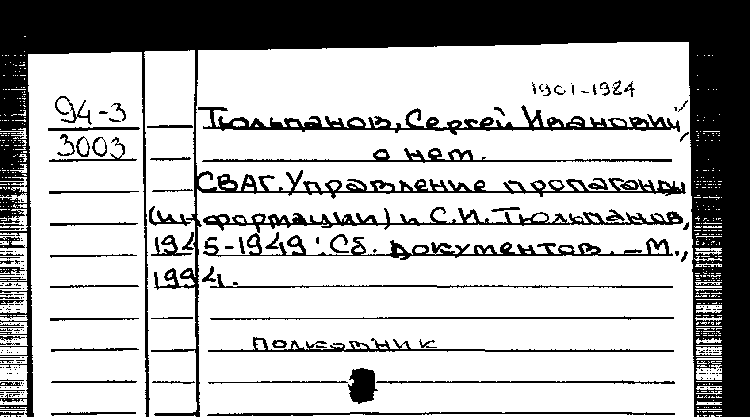 1901-1984
94-3
3003
Тюльпанов, Сергей Иванович,
о нем.
СВАГ. Управление пропаганды
(информации) и С.И. Тюльпанов,
1945-1949: Сб. документов. – М.,
1994.
полковник